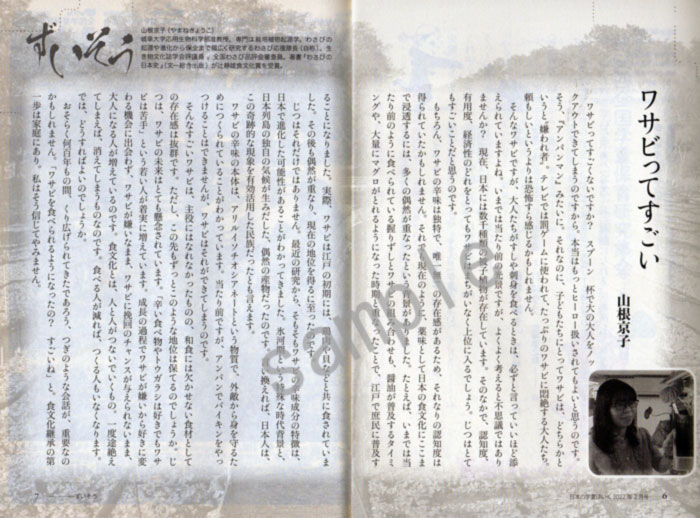 ワサビってすごい
山根京子
ワサビってすごくないですか？　スプーン一杯で大の大人をノッ
クアウトできてしまうのですから。本当はもっとヒーロー扱いされてもよいと思うのです。
そう、『アンパンマン』みたいに。それなのに、子どもたちにとってワサビは、どちらかと
いうと“嫌われ者”。テレビでは罰ゲームに使われて、たっぷりのワサビに悶絶する大人たち。
頼もしいというよりは恐怖すら感じるかもしれません。
そんなワサビですが、大人たちがすしや刺身を食べるときは、必ずと言っていいほど添
えられていますよね。いまでは当たり前の光景ですが、よくよく考えると不思議ではあり
ませんか？　現在、日本には数千種類の種子植物が存在しています。そのなかで、認知度、
有用度、経済性のどれをとってもワサビはまちがいなく上位に入るでしょう。じつはとて
もすごいことだと思うのです。
もちろん、ワサビの辛味は独特で、唯一無二の存在感があるため、それなりの認知度は
得られていたかもしれません。それでも現在のように、薬味として日本の食文化にここま
で浸透するには、多くの偶然が重なったという背景がありました。たとえば、いまでは当
たり前のように食べられている握りずしとワサビの組み合わせも、醤油が普及するタイミ
ングや、大量にマグロがとれるようになった時期と重なったことで、江戸で庶民に普及す
日本の学童ほいく 2022年2月号　6
ずいそう
山根京子（やまねきょうこ）
岐阜大学応用生物科学部准教授。専門は栽培植物起源学。わさびの
起源や進化から保全まで幅広く研究するわさび応援隊長（自称）。生
き物文化誌学会評議員。全国わさび品評会審査員。著書『わさびの
日本史』（文一総合出版）が辻静雄食文化賞を受賞。
ることになりました。実際、ワサビは江戸の初期には、
した。その後も偶然が重なり、現在の地位を得るに至った
じつはそれだけではありません。最近の研究から、そもそもワサビの辛味成分の特徴は、
日本で進化した可能性があることがわかってきました。氷河期という特殊な時代背景と、
日本列島の独自の気候が生みだした、偶然の産物だったのです。言い換えれば、日本人は、
この奇跡的な現象を有効活用した民族だったとも言えます。
ワサビの辛味の本体は、アリルイソチオシアネートという物質で、外敵から身を守るた
めにつくられていることがわかっています。当たり前ですが、アンパンでバイキンをやっ
つけることはできませんが、ワサビはそれができてしまうのです。
そんなすごいワサビは、主役にはなれなかったものの、和食には欠かせない食材として
の存在感は抜群です。ただし、この先もずっとこのような地位は保てるのでしょうか。じ
つは、ワサビの未来はとても懸念されています。「辛い食べ物やトウガラシは好きでもワサ
ビは苦手」という若い人が着実に増えています。成長の過程でワサビが嫌いから好きに変
わる機会に出会わず、ワサビが嫌いなまま、ワサビに挽回のチャンスが与えられないまま、
大人になる人が増えているのです。食文化とは、人と人がつないでいくもの。一度途絶え
てしまえば、消えてしまうものなのです。食べる人が減れば、つくる人もいなくなります。
では、どうすればよいのでしょうか。
おそらく何百年もの間、くり広げられてきたであろう、つぎのような会話が、重要なの
かもしれません。「ワサビを食べられるようになったの？　すごいね」と。食文化継承の第
一歩は家庭にあり。私はそう信じてやみません。
7　ずいそう
sample